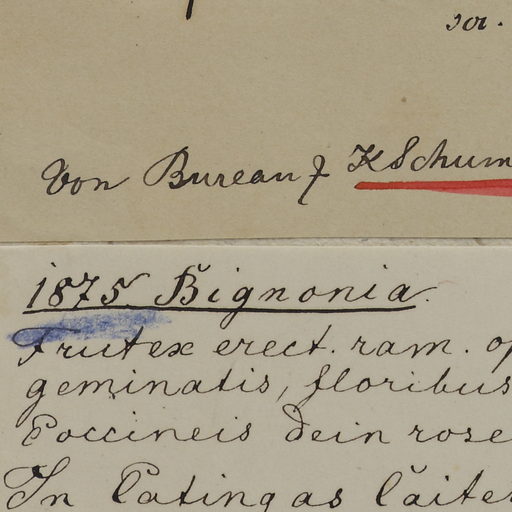 Von Bureau & K Schum
1875. Bignonia.
Frutex erect. ram. op
geminatis, floribus
Coccineis dein rose
In Catingas Caite